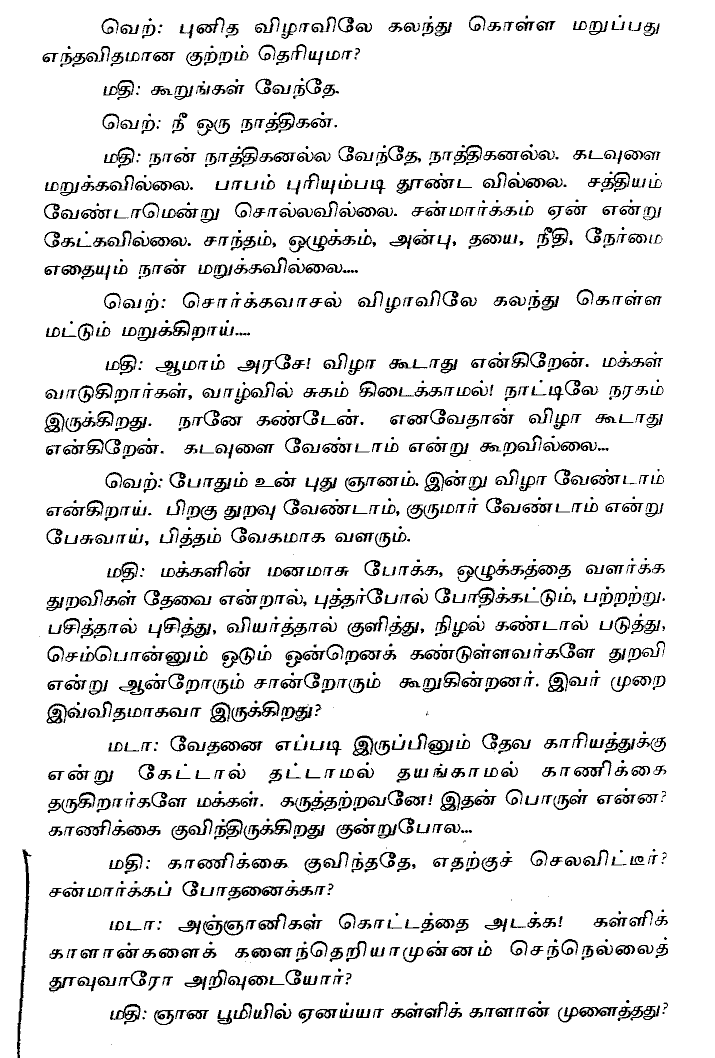 வெற்: புனித விழாவிலே கலந்து கொள்ள மறுப்பது
எந்தவிதமான குற்றம் தெரியுமா?
மதி: கூறுங்கள் வேந்தே.
வெற்: நீ ஒரு நாத்திகன்.
மதி: நான் நாத்திகனல்ல வேந்தே, நாத்திகனல்ல. கடவுளை
மறுக்கவில்லை. பாபம் புரியும்படி தூண்ட வில்லை. சத்தியம்
வேண்டாமென்று சொல்லவில்லை. சன்மார்க்கம் ஏன் என்று
கேட்கவில்லை. சாந்தம், ஒழுக்கம், அன்பு, தயை, நீதி, நேர்மை
எதையும் நான் மறுக்கவில்லை....
வெற்: சொர்க்கவாசல் விழாவிலே கலந்து கொள்ள
மட்டும் மறுக்கிறாய்....
மதி: ஆமாம் அரசே! விழா கூடாது என்கிறேன். மக்கள்
வாடுகிறார்கள், வாழ்வில் சுகம் கிடைக்காமல்! நாட்டிலே நரகம்
இருக்கிறது. நானே கண்டேன். எனவேதான் விழா கூடாது
என்கிறேன். கடவுளை வேண்டாம் என்று கூறவில்லை...
வெற்: போதும் உன் புது ஞானம். இன்று விழா வேண்டாம்
என்கிறாய். பிறகு துறவு வேண்டாம், குருமார் வேண்டாம் என்று
பேசுவாய், பித்தம் வேகமாக வளரும்.
மதி: மக்களின் மனமாசு போக்க, ஒழுக்கத்தை வளர்க்க
துறவிகள் தேவை என்றால், புத்தர்போல் போதிக்கட்டும், பற்றற்று.
பசித்தால் புசித்து, வியர்த்தால் குளித்து, நிழல் கண்டால் படுத்து,
செம்பொன்னும் ஒடும் ஒன்றெனக் கண்டுள்ளவர்களே துறவி
என்று ஆன்றோரும் சான்றோரும் கூறுகின்றனர். இவர் முறை
இவ்விதமாகவா இருக்கிறது?
மடா: வேதனை எப்படி இருப்பினும் தேவ காரியத்துக்கு
என்று கேட்டால் தட்டாமல் தயங்காமல் காணிக்கை
தருகிறார்களே மக்கள். கருத்தற்றவனே! இதன் பொருள் என்ன?
காணிக்கை குவிந்திருக்கிறது குன்றுபோல...
மதி: காணிக்கை குவிந்ததே, எதற்குச் செலவிட்டீர்?
சன்மார்க்கப் போதனைக்கா?
மடா: அஞ்ஞானிகள் கொட்டத்தை அடக்க! கள்ளிக்
காளான்களைக் களைந்தெறியாமுன்னம் செந்நெல்லைத்
தூவுவாரோ அறிவுடையோர்?
மதி: ஞான பூமியில் ஏனய்யா கள்ளிக் காளான் முளைத்தது?